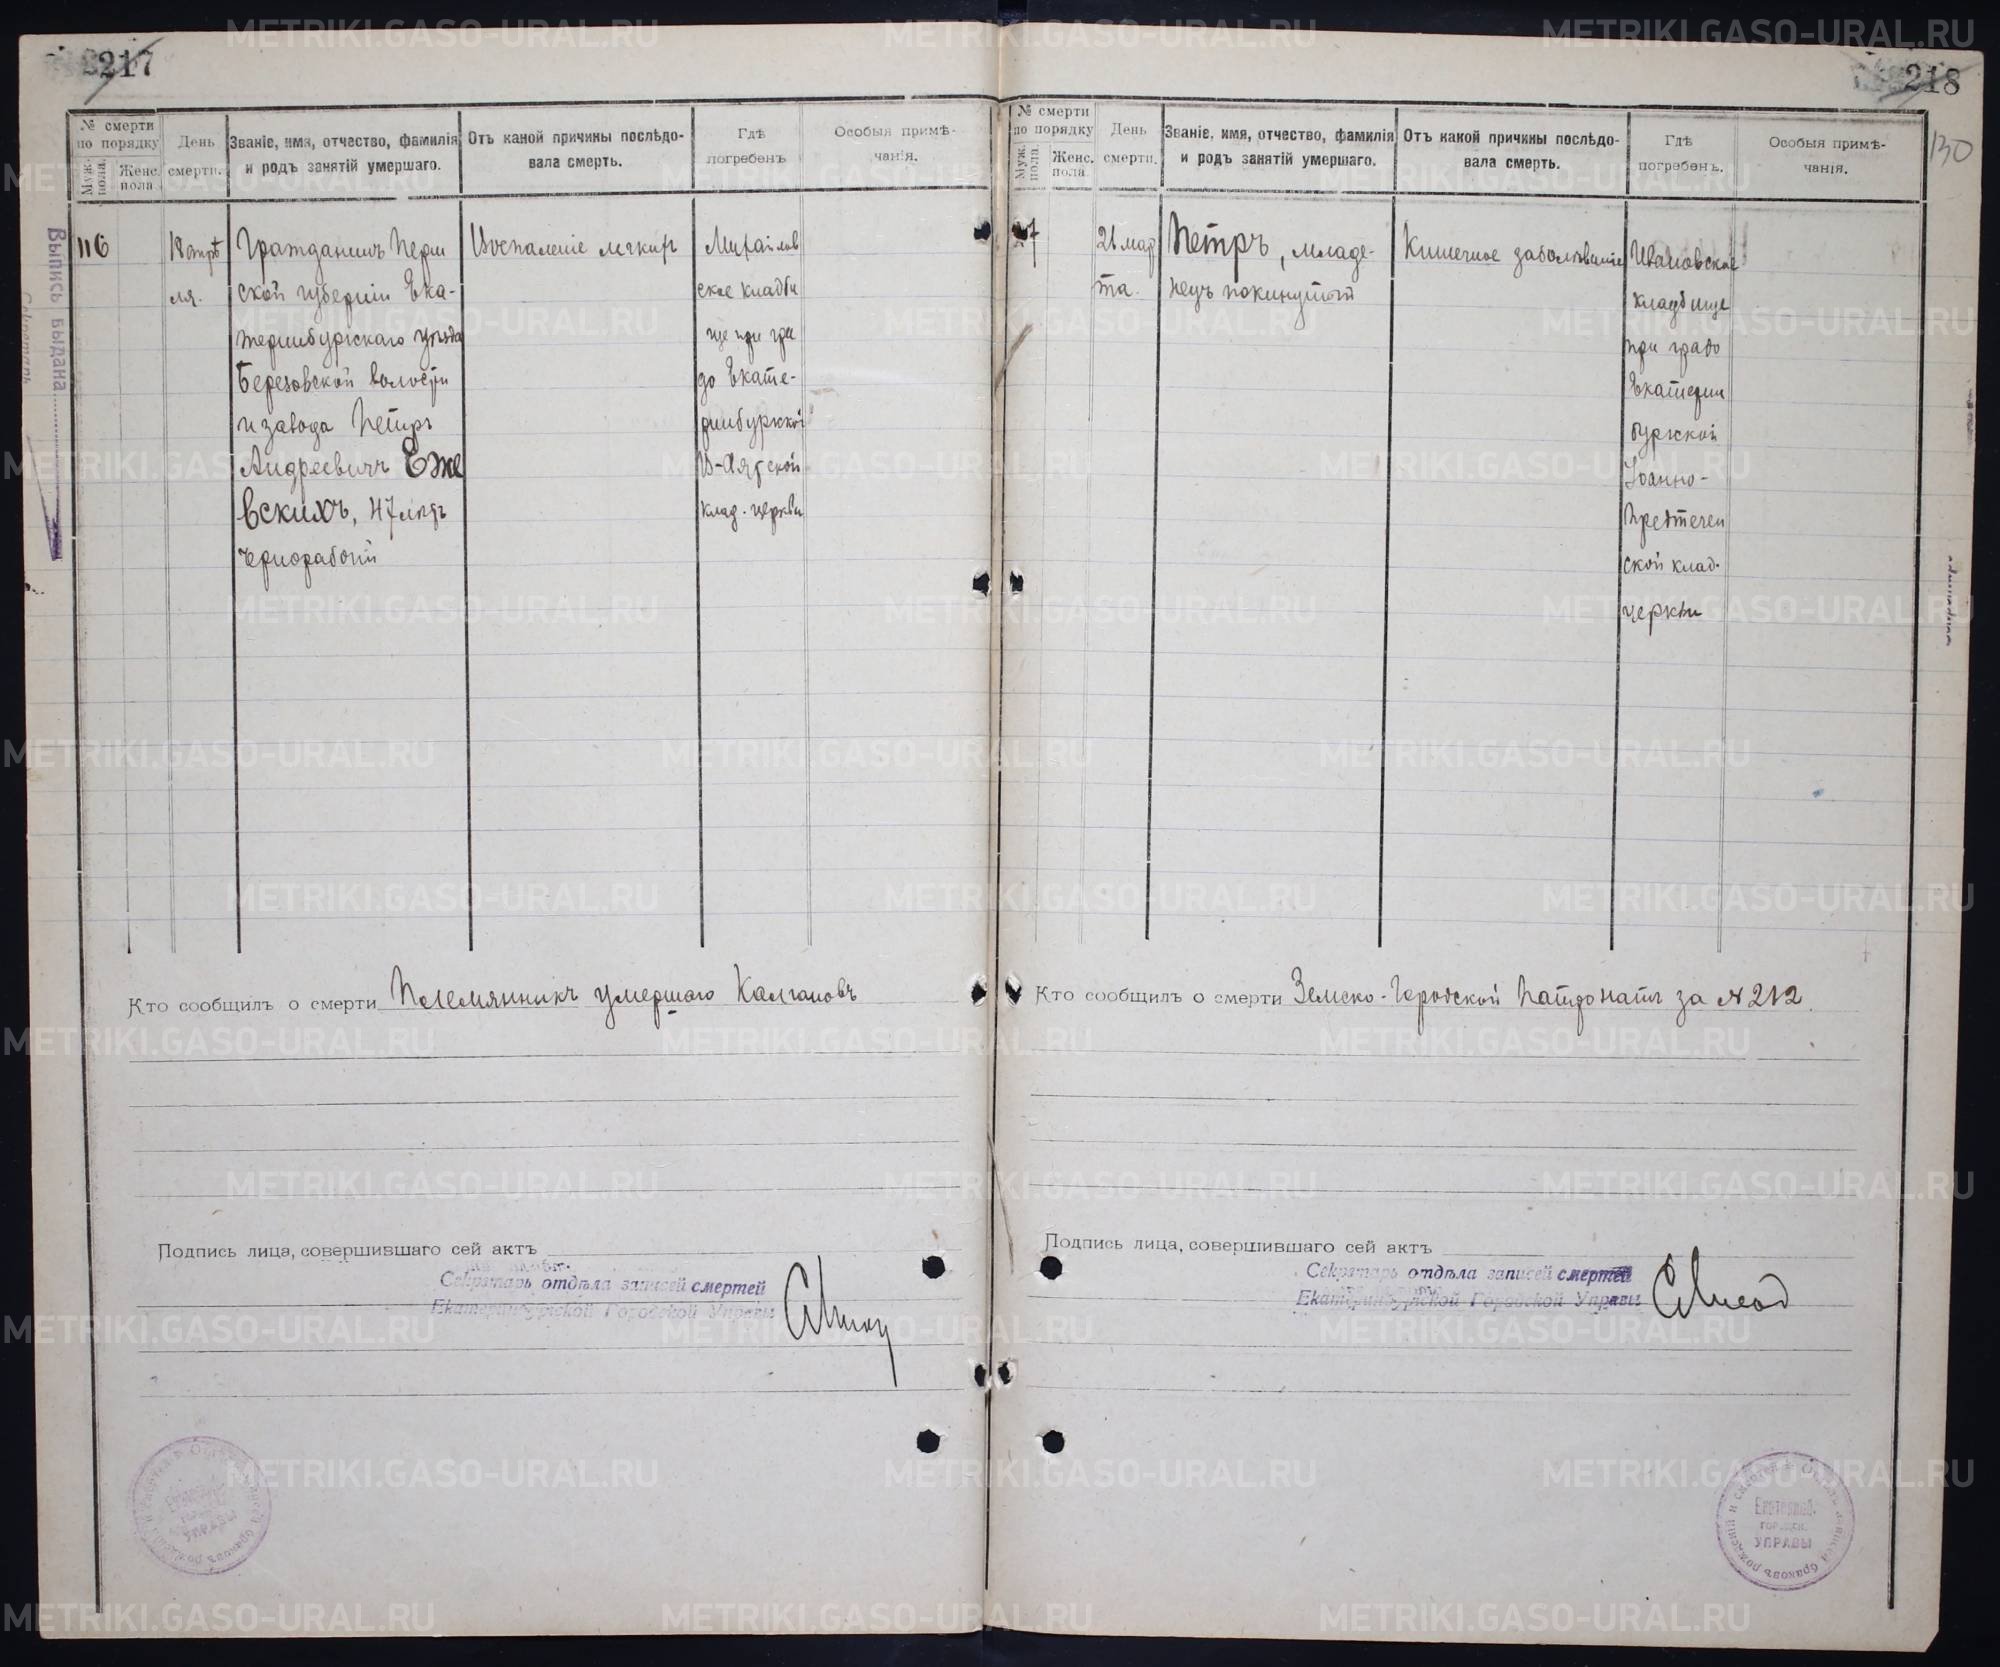 217
№ смерти по порядку
Муж. пола.
Женс. пола.
День смерти.
Званіе, имя, отчество, фамилія и родъ занятій умершаго.
Отъ какой причины послѣдовала смерть.
Гдѣ погребенъ
Особыя примѣчанія.
116
18 апрѣ
ля.
Гражданинъ Перм
ской губерніи Ека-
теринбургскаго уѣзда
Березовской волости
и завода Петръ
Андреевичъ Еже
вскихъ, 47 лѣтъ
чернорабочій
Воспаленіе легкихъ
Михайлов
ское кладби
ще при гра
до Екате-
ринбургской
клад. церкви
Выпись выдана
Кто сообщилъ о смерти Племянникъ умершаго Калгановъ
Подпись лица, совершившаго сей актъ
Секретарь отдѣла записей смертей
Екатеринбургской Городской Управы
УПРАВЫ
218
130
№ смерти по порядку
Муж. пола
Женс. пола.
День смерти.
Званіе, имя, отчество, фамилія и родъ занятій умершаго.
Отъ какой причины послѣдовала смерть.
Гдѣ погребенъ.
Особыя примѣчанія.
21 мар
та.
Петръ, младе-
нецъ покинутый
Кишечное заболѣваніе
Ивановское
кладбище
при градо
Екатерин
бургской
Іоанно-
Предтечен
ской клад.
церкви
Кто сообщилъ о смерти Земско-Городской Патронатъ за № 212.
Подпись лица, совершившаго сей актъ
Секретарь отдѣла записей смертей
Екатеринбургской Городской Управы
Екатеринб.
Городск.
УПРАВЫ
METRIKI.GASO-URAL.RU